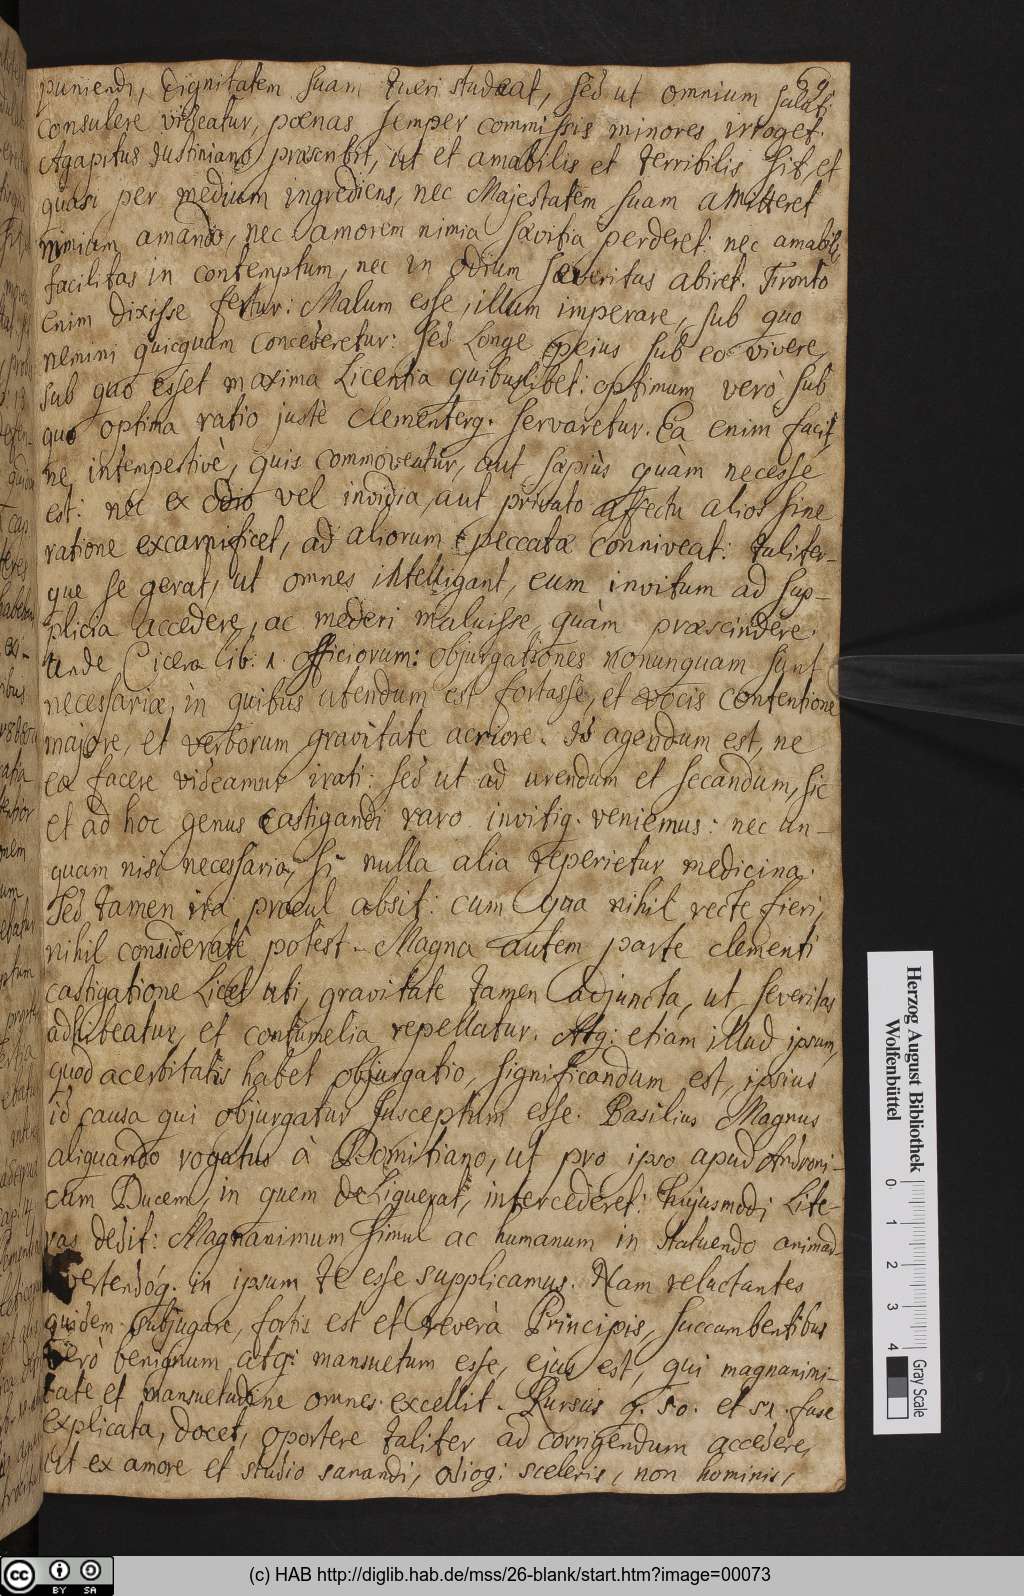 69.
puniendi, Dignitatem suam tueri studeat, sed ut omnium saluti
consulere videatur, pœnas semper commissis minores irroget.
Agapitus Justiniano præscribit, ut et amabilis et terribilis sit, et
quasi per medium ingrediens, nec Majestatem suam amitteret
nimium amando, nec amorem nimia sævitia perderet: nec amabilis
facilitas in contemptum, nec in odium severitas abiret. Fronto
enim dixisse fertur: Malum esse, illum imperare, sub quo
nemini quicquam concederetur: sed longe pejus sub eo vivere,
sub quo esset maxima Licentia quibuslibet: optimum verò, sub
quo optima ratio justè clementerq. servaretur. Ea enim facit,
ne intempestivè, quis commoveatur, aut sæpiùs quàm necesse
est: nec ex odio vel invidia, aut privato affectu alios sine
ratione excarnificet, ad aliorum peccata conniveat: taliter-
que se gerat, ut omnes intelligant, eum invitum ad sup-
plicia accedere, ac mederi maluisse quàm præscindere.
Unde Cicero lib: 1. officiorum: objurgationes nonunquam sunt
necessariæ, in quibus utendum est fortasse, et vocis contentione
majore, et verborum gravitate acriore. Id agendum est, ne
ea facere videamur irati: sed ut ad urendum et secandum, sic
et ad hoc genus castigandi raro invitiq. veniemus: nec un-
quam nisi necessaria, si nulla alia reperietur medicina.
Sed tamen ira procul absit: cum qua nihil recte fieri,
nihil consideratè potest. Magna autem parte clementi
castigatione Licet uti, gravitate tamen adjuncta, ut severitas
adhibeatur, et contumelia repellatur. Atq: etiam illud ipsum,
quod acerbitatis habet objurgatio, significandum est, ipsius
id causa qui objurgatur susceptum esse. Basilius Magnus
aliquando rogatus à Domitiano, ut pro ipso apud Androni-
cum Ducem, in quem deliquerat, intercederet: hujusmodi Lite-
ras dedit: Magnanimum simul ac humanum in statuendo animad-
vertendóq. in ipsum te esse supplicamus. Nam reluctantes
quidem subjugare, fortis est et reverà Principis, succumbentibus
verò benignum atq: mansuetum esse, ejus est, qui magnanimi-
tate et mansuetudine omnes excellit. Rursus q. 50. et 51. fuse
explicata, docet, oportere taliter ad corrigendum accedere,
ut ex amore et studio sanandi, odioq: sceleris, non hominis,
Herzog August Bibliothek
Wolfenbüttel
0 1 2 3 4
Gray Scale
(c) HAB http://diglib.hab.de/mss/26-blank/start.htm?image=00073